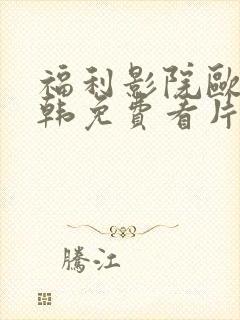 福利影院欧
韩免費看片
騰江